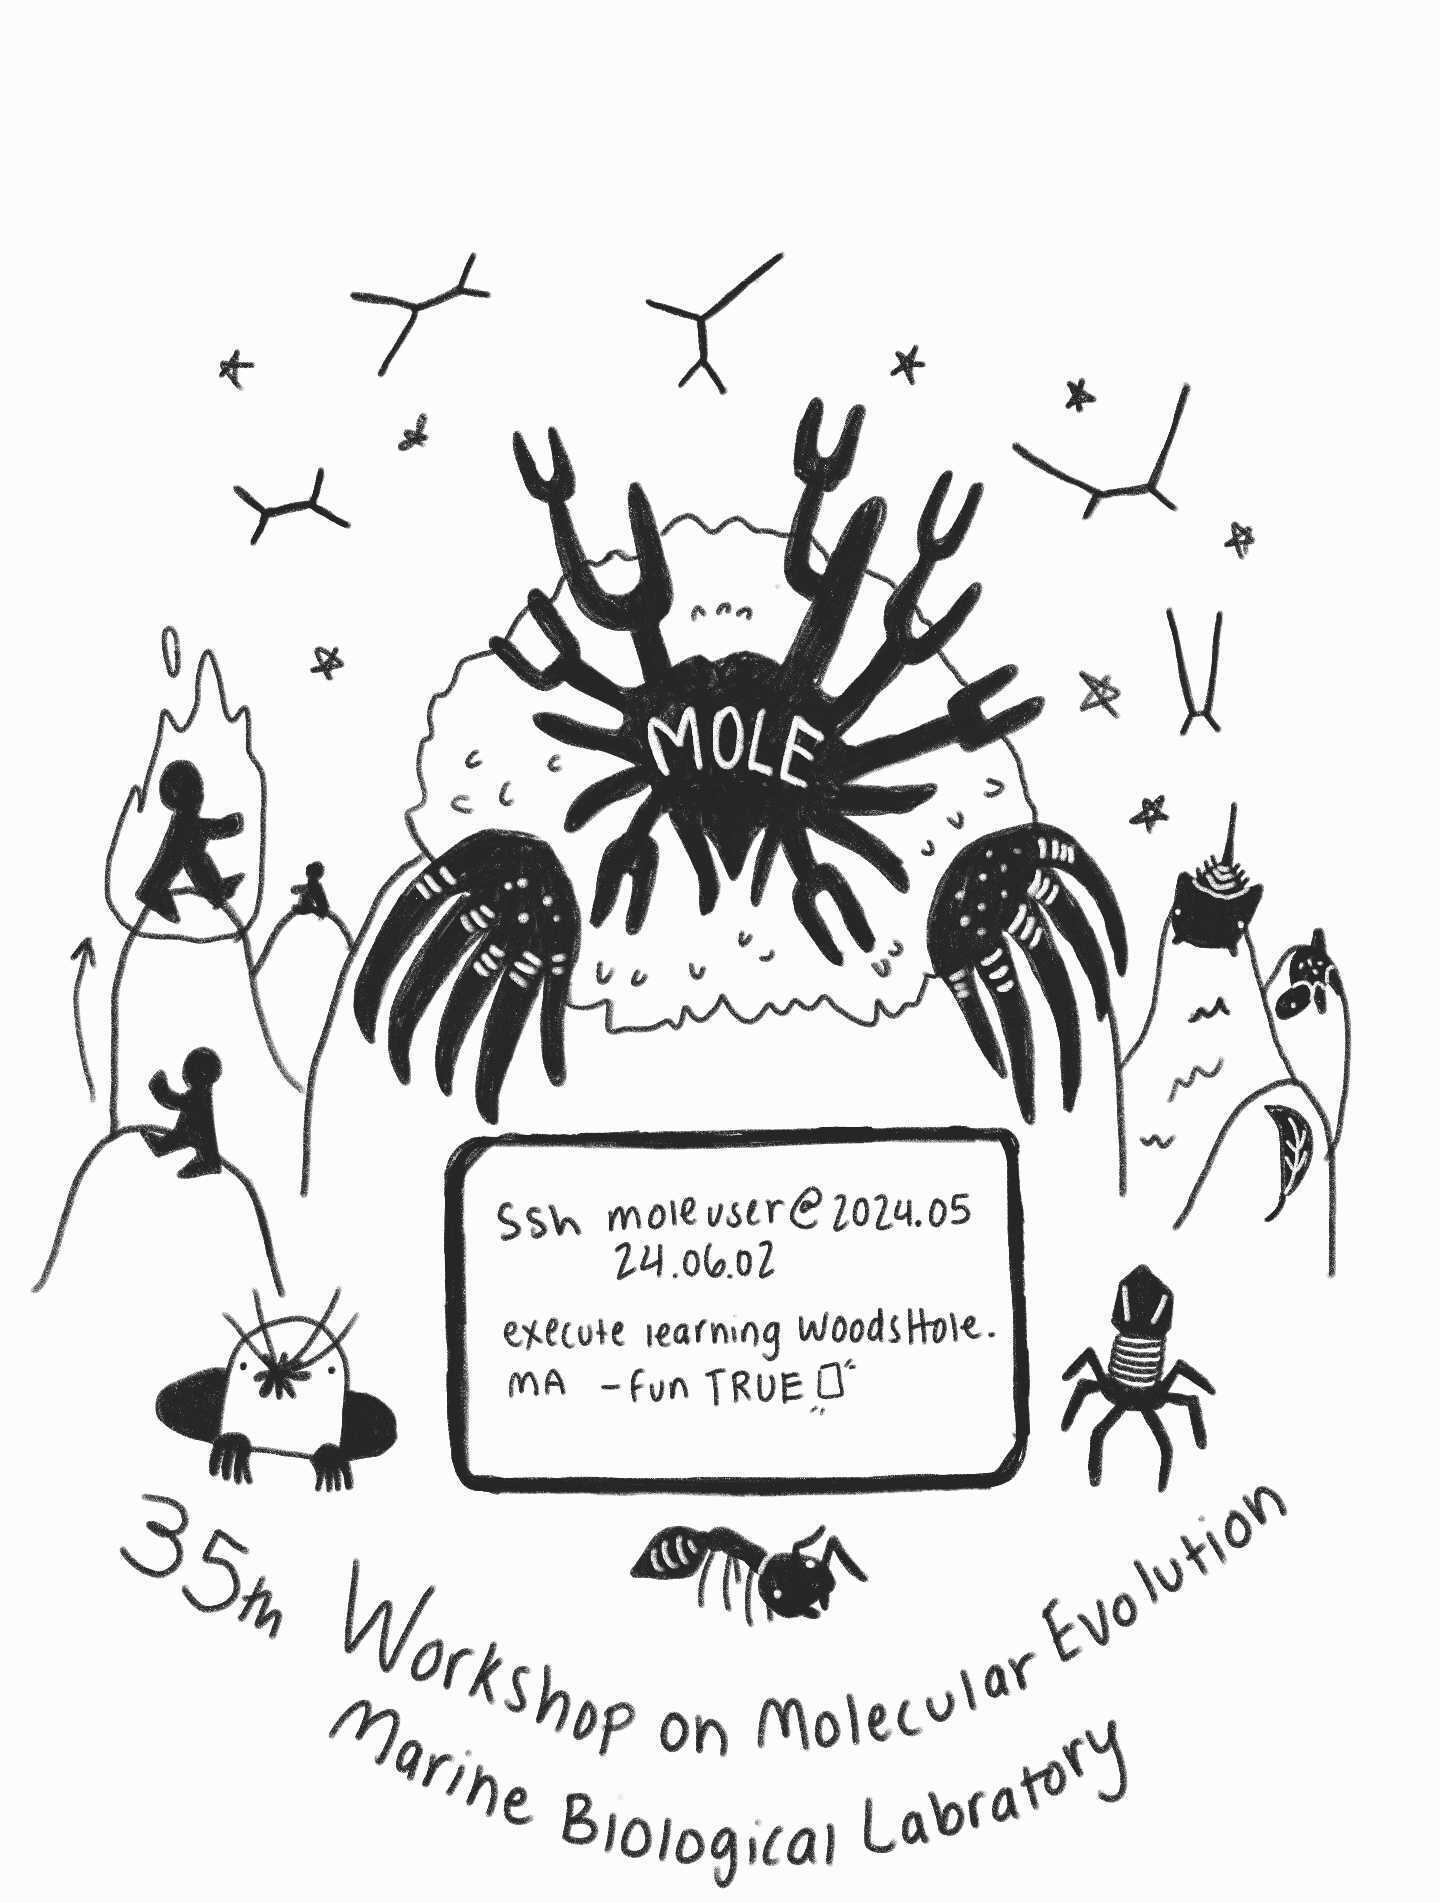 MOLE
ssh moleuser@2024.05
24.06.02
execute learning WoodsHole.
MA -fun TRUE
35th Workshop on Molecular Evolution
Marine Biological Labratory